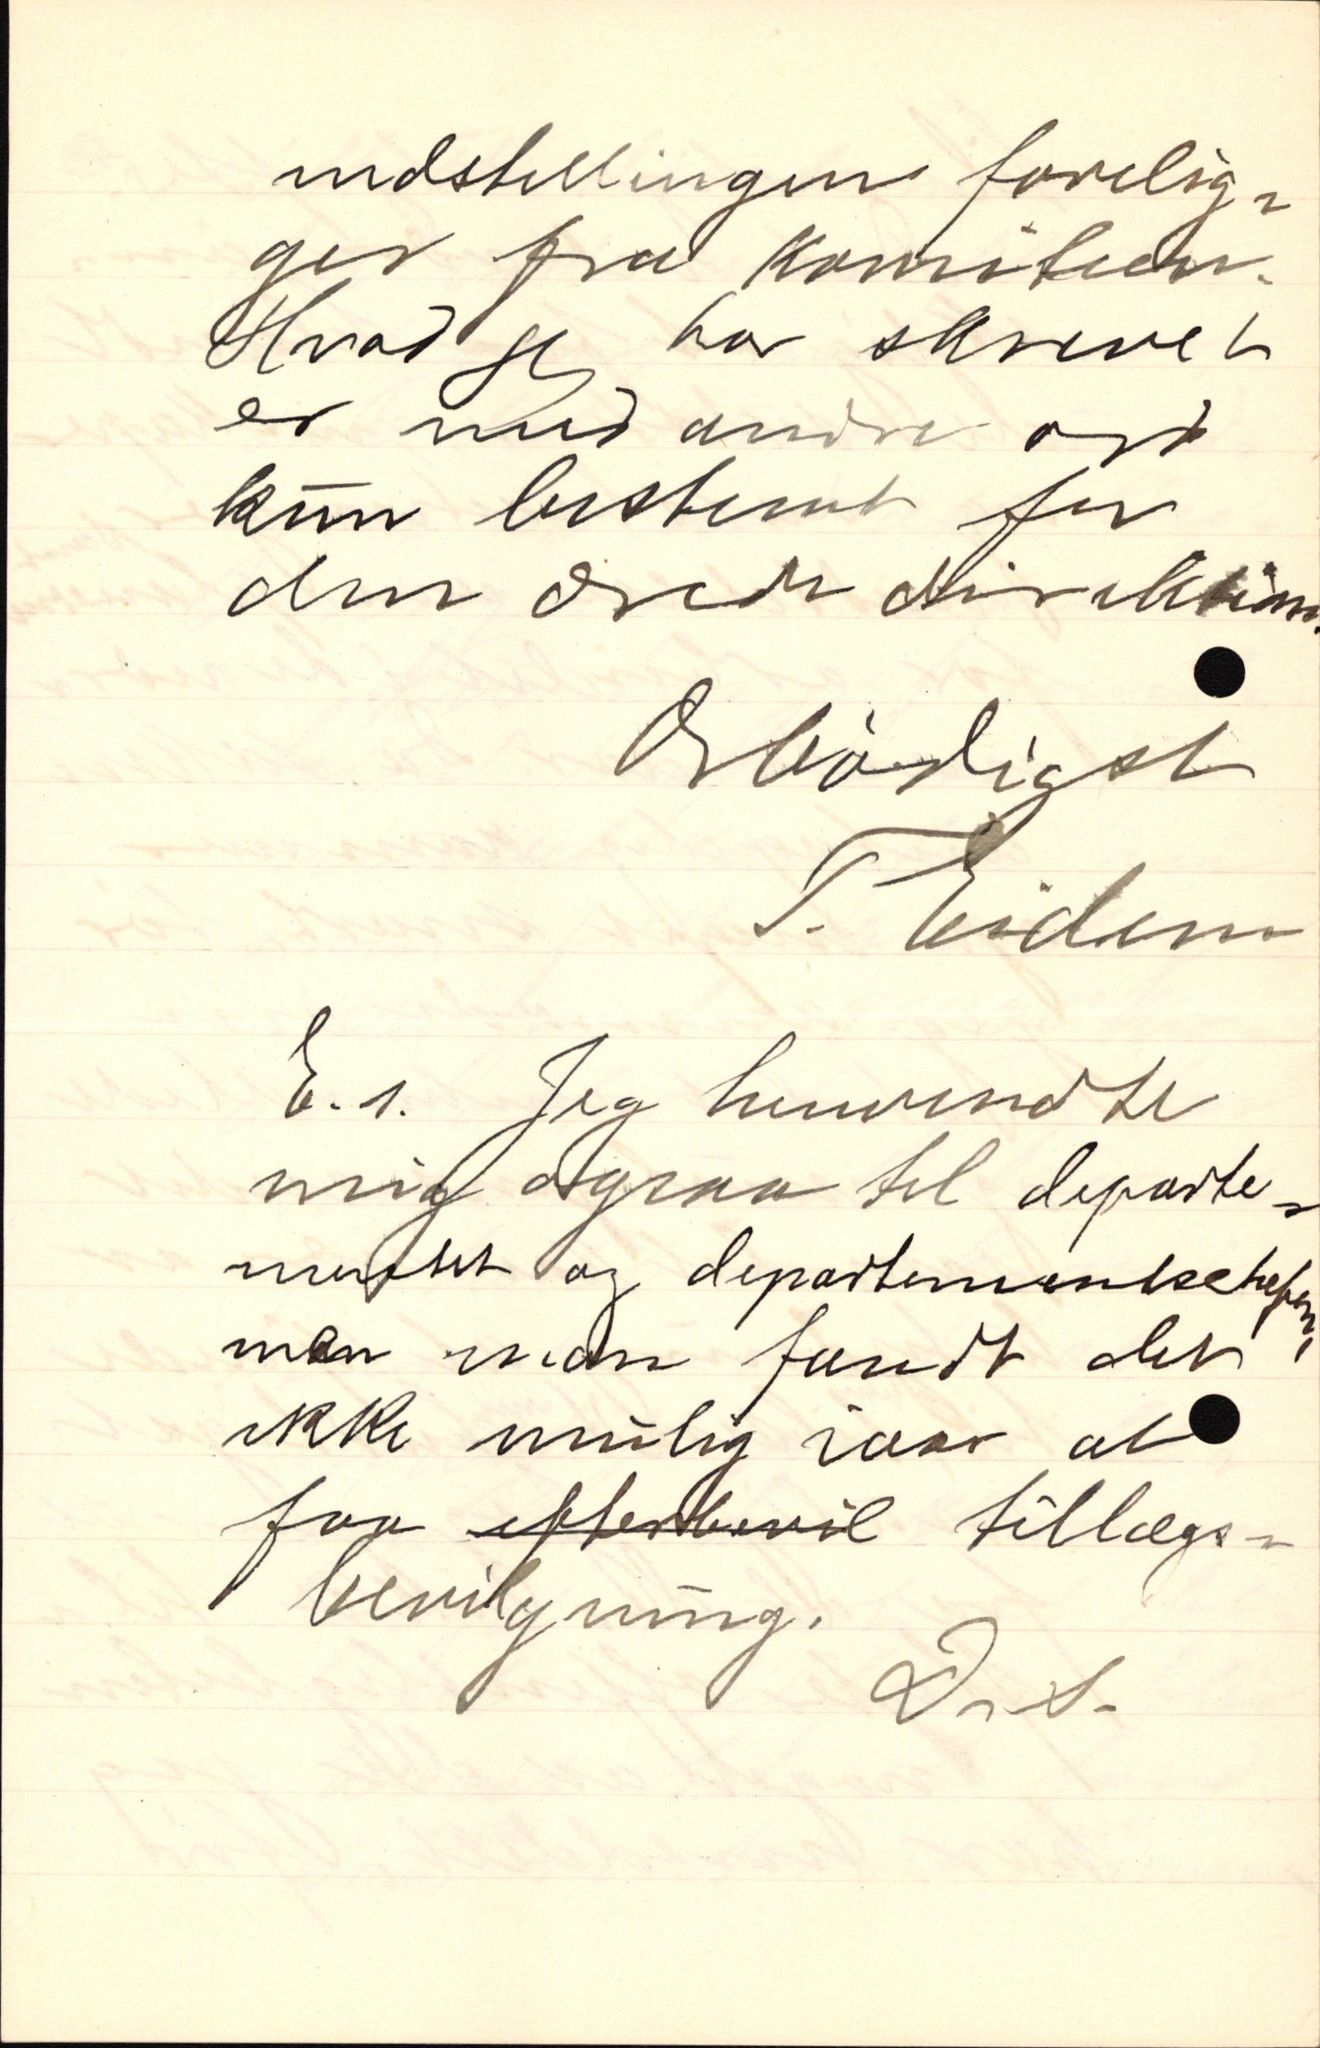 indstillingen forelig-
ger fra komiteen.
Hvad jeg har skrevet
er med andre ord
kūn bestemt for
den ærede direktion.
Ærbödigst
T. Eidem
E. s. Jeg henvendte
mig ogsaa til departe-
mentet og departementschefen,
men man fandt det
ikke mūlig iaar at
faa efterbevil tillægs-
bevilgnūng.
D. S.